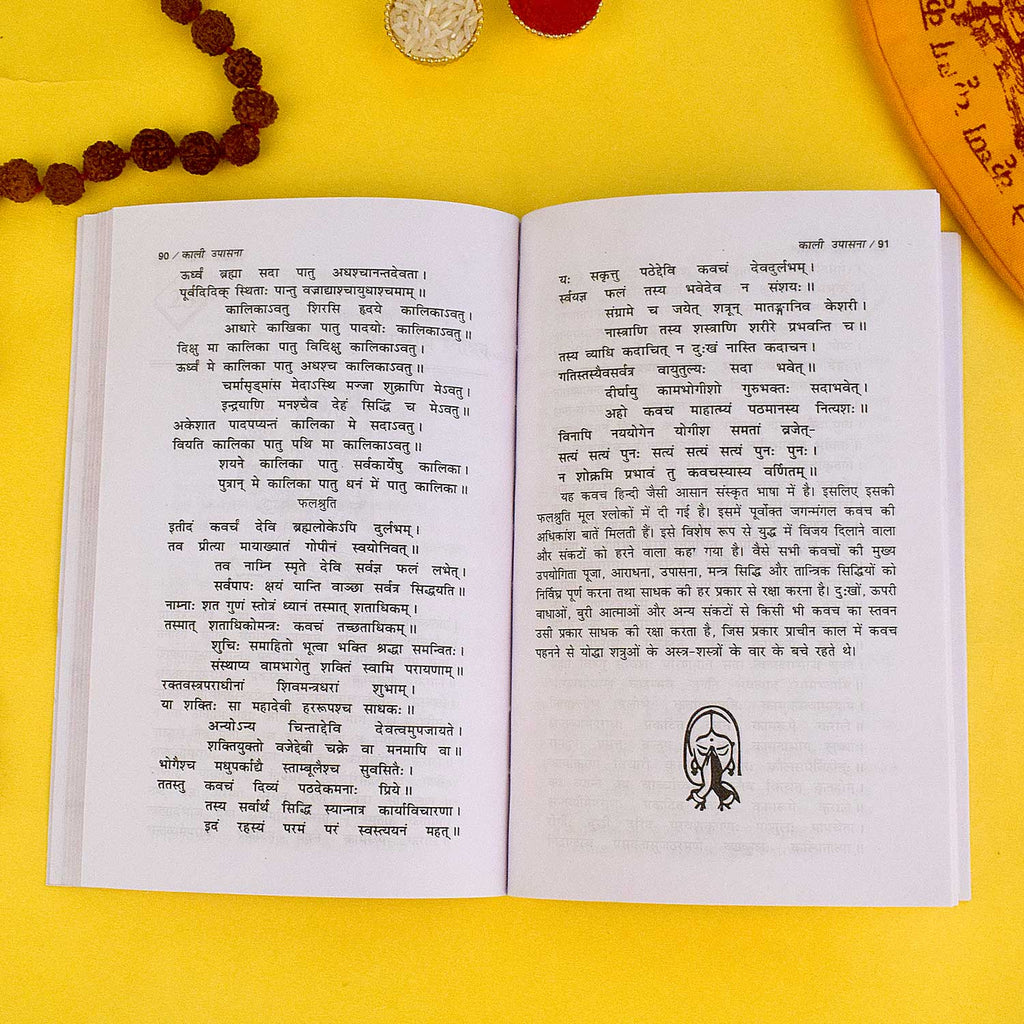 90 / काली उपासना
ऊर्ध्वं ब्रह्मा सदा पातु अधश्चानन्तदेवता।
पूर्वदिदिक् स्थिताः पान्तु वज्राद्याश्चायुधाश्चमाम्॥
कालिकाऽवतु शिरसि हृदये कालिकाऽवतु।
आधारे काखिका पातु पादयोः कालिकाऽवतु॥
दिक्षु मा कालिका पातु विदिक्षु कालिकाऽवतु।
ऊर्ध्वं मे कालिका पातु अधश्च कालिकाऽवतु॥
चर्मासृड्मांस मेदाऽस्थि मज्जा शुक्राणि मेऽवतु।
इन्द्रयाणि मनश्चैव देहं सिद्धिं च मेऽवतु॥
अकेशात पादपप्यन्तं कालिका मे सदाऽवतु।
वियति कालिका पातु पथि मा कालिकाऽवतु॥
शयने कालिका पातु सर्वकार्येषु कालिका।
पुत्रान् मे कालिका पातु धनं में पातु कालिका॥
फलश्रुति
इतीदं कवचं देवि ब्रह्मलोकेऽपि दुर्लभम्।
तव प्रीत्या मायाख्यातं गोपीनं स्वयोनिवत्॥
तव नाम्नि स्मृते देवि सर्वज्ञ फलं लभेत्।
सर्वपापः क्षयं यान्ति वाञ्छा सर्वत्र सिद्धयति॥
नाम्नाः शत गुणं स्तोत्रं ध्यानं तस्मात् शताधिकम्।
तस्मात् शताधिकोमन्त्रः कवचं तच्छताधिकम्॥
शुचिः समाहितो भूत्वा भक्ति श्रद्धा समन्वितः।
संस्थाप्य वामभागेतु शक्तिं स्वामि परायणाम्॥
रक्तवस्त्रपराधीनां शिवमन्त्रधरां शुभाम्।
या शक्तिः सा महादेवी हररूपश्च साधकः॥
अन्योऽन्य चिन्ताद्देवि देवत्वमुपजायते।
शक्तियुक्तो वजेद्देबी चक्रे वा मनमापि वा॥
भोगैश्च मधुपर्काद्यै स्ताम्बूलैश्च सुवसितैः।
ततस्तु कवचं दिव्यं पठदेकमनाः प्रिये॥
तस्य सर्वार्थ सिद्धि स्यान्नात्र कार्याविचारणा।
इवं रहस्यं परमं परं स्वस्त्ययनं महत्॥
काली उपासना / 91
यः सकृत्तु पठेद्देवि कवचं देवदुर्लभम्।
र्स्वयज्ञ फलं तस्य भवेदेव न संशयः॥
संग्रामे च जयेत् शत्रून् मातङ्गानिव केशरी।
नास्त्राणि तस्य शस्त्राणि शरीरे प्रभवन्ति च॥
तस्य व्याधि कदाचित् न दुःखं नास्ति कदाचन।
गतिस्तस्यैवसर्वत्र वायुतुल्यः सदा भवेत्॥
दीर्घायु कामभोगीशो गुरुभक्तः सदाभवेत्।
अहो कवच माहात्म्यं पठमानस्य नित्यशः॥
विनापि नययोगेन योगीश समतां व्रजेत्-
सत्यं सत्यं पुनः सत्यं सत्यं सत्यं पुनः पुनः।
न शोक्रमि प्रभावं तु कवचस्यास्य वर्णितम्॥
यह कवच हिन्दी जैसी आसान संस्कृत भाषा में है। इसलिए इसकी
फलश्रुति मूल श्लोकों में दी गई है। इसमें पूर्वोक्त जगन्मंगल कवच की
अधिकांश बातें मिलती हैं। इसे विशेष रूप से युद्ध में विजय दिलाने वाला
और संकटों को हरने वाला कहा गया है। वैसे सभी कवचों की मुख्य
उपयोगिता पूजा, आराधना, उपासना, मन्त्र सिद्धि और तान्त्रिक सिद्धियों को
निर्विघ्न पूर्ण करना तथा साधक की हर प्रकार से रक्षा करना है। दुःखों, ऊपरी
बाधाओं, बुरी आत्माओं और अन्य संकटों से किसी भी कवच का स्तवन
उसी प्रकार साधक की रक्षा करता है, जिस प्रकार प्राचीन काल में कवच
पहनने से योद्धा शत्रुओं के अस्त्र-शस्त्रों के वार के बचे रहते थे।